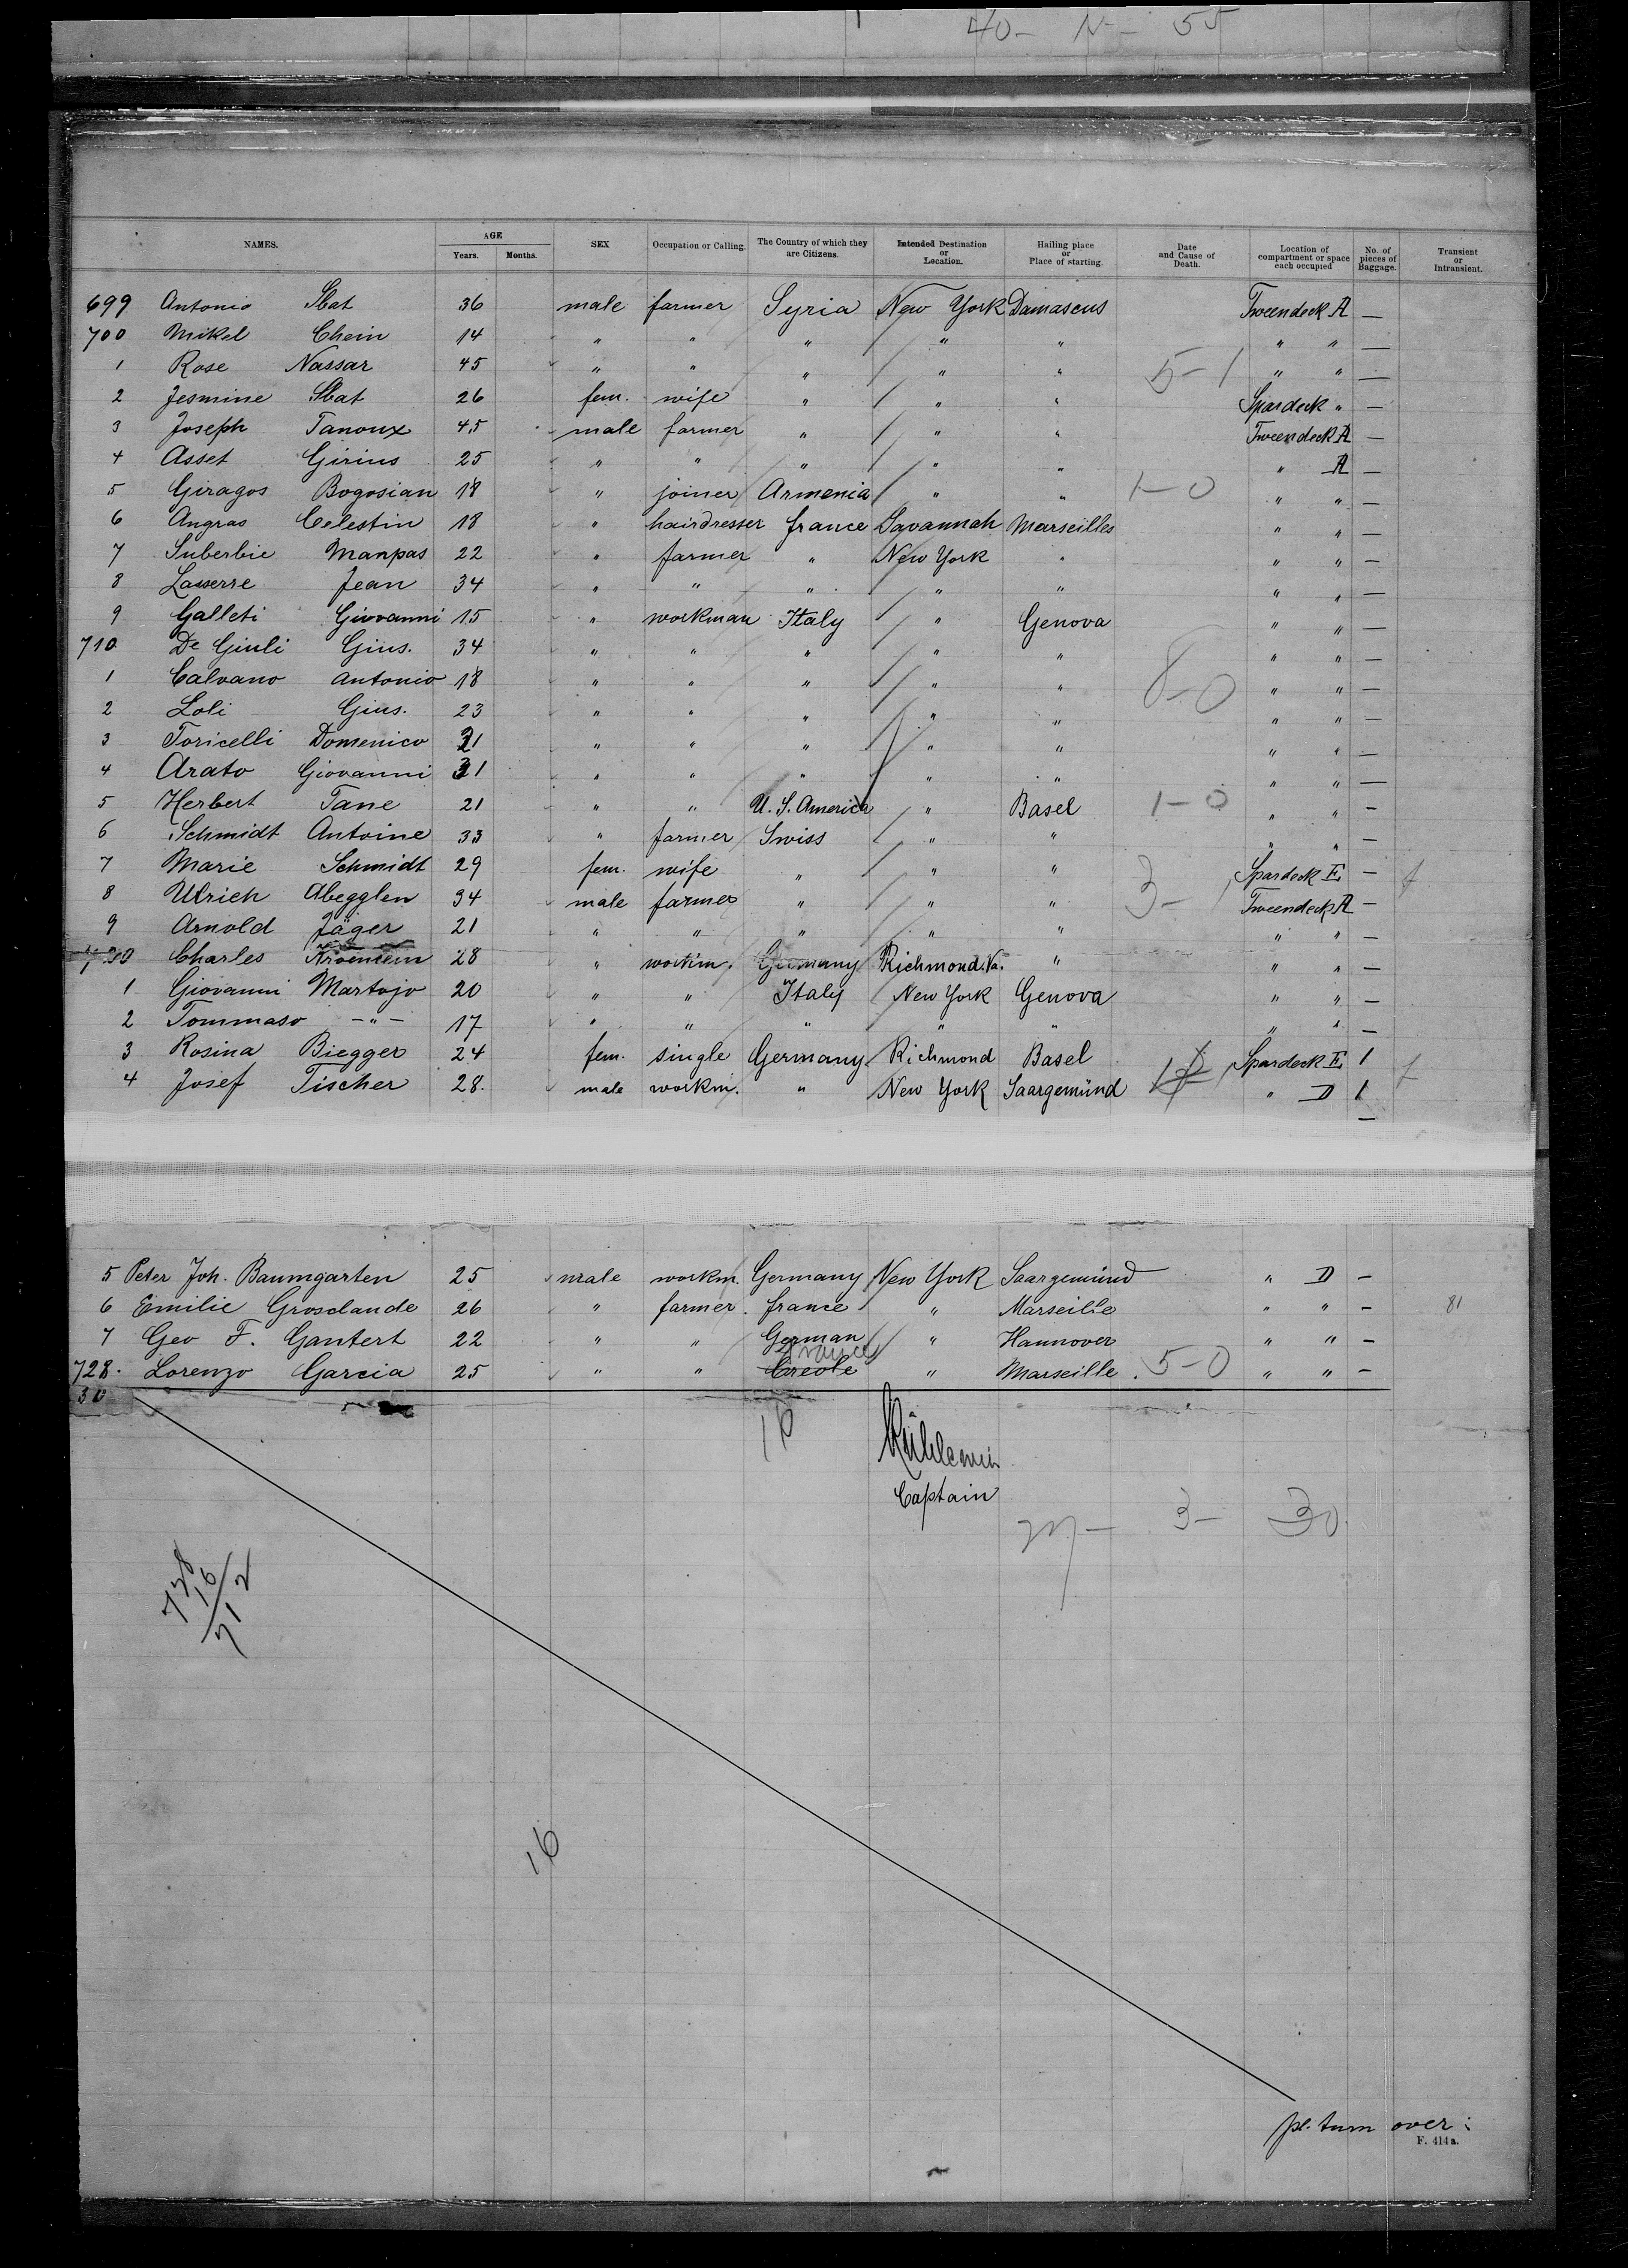 40- N- 55
NAMES. AGE Years. Months. SEX Occupation or Calling. The Country of which they are Citizens. Intended Destination or Location. Hailing place or Place of starting. Date and Cause of Death. Location of compartment or space each occupied No. of pieces of Baggage. Transient or Intransient.
699 Antonio Sbat 36 male farmer Syria New York Damascus Tweendeck A —
700 Mikel Chein 14 " " " " " " " —
1 Rose Nassar 45 " " " " " 5-1 " " —
2 Jesmine Sbat 26 fem. wife " " " Spardeck " —
3 Joseph Tanoux 45 male farmer " " " Tweendeck A —
4 Asset Girius 25 " " " " " " A —
5 Giragos Bogosian 18 " joiner Armenia " " 1-0 " " —
6 Angras Celestin 18 " hairdresser france Savannah Marseilles " " —
7 Suberbie Manpas 22 " farmer " New York " " " —
8 Lasserre Jean 34 " " " " " " " —
9 Galleti Giovanni 15 " workman Italy " Genova " " —
710 De Giuli Gius. 34 " " " " " " " —
1 Calvano Antonio 18 " " " " " 8-0 " " —
2 Loli Gius. 23 " " " " " " " —
3 Toricelli Domenico 21 " " " " " " " —
4 Arato Giovanni 31 " " " " " " " —
5 Herbert Tane 21 " " U. S. America " Basel 1-0 " " —
6 Schmidt Antoine 33 " farmer Swiss " " " " —
7 Marie Schmidt 29 fem. wife " " " Spardeck E —
8 Ulrich Abegglen 34 male farmer " " " 3- Tweendeck A —
9 Arnold Jäger 21 " " " " " " " —
720 Charles 28 " workm. Germany Richmond Va. " " " —
1 Giovanni Martojo 20 " " Italy New York Genova " " —
2 Tommaso -"- 17 " " " " " " " —
3 Rosina Biegger 24 fem. single Germany Richmond Basel Spardeck E 1
4 Josef Tischer 28. male workm. " New York Saargemünd " D 1
—
5 Peter Joh. Baumgarten 25 male workm. Germany New York Saargemünd " D —
6 Emilie Grosclaude 26 " farmer. france " Marseille " " — 81
7 Geo F. Gantert 22 " " German " Hannover " " —
France
728. Lorenzo Garcia 25 " " Creole " Marseille. 5-0 " " —
30
16
Captain
27- 3- 30
728
16
712
16
pl. turn over:
F. 414a.